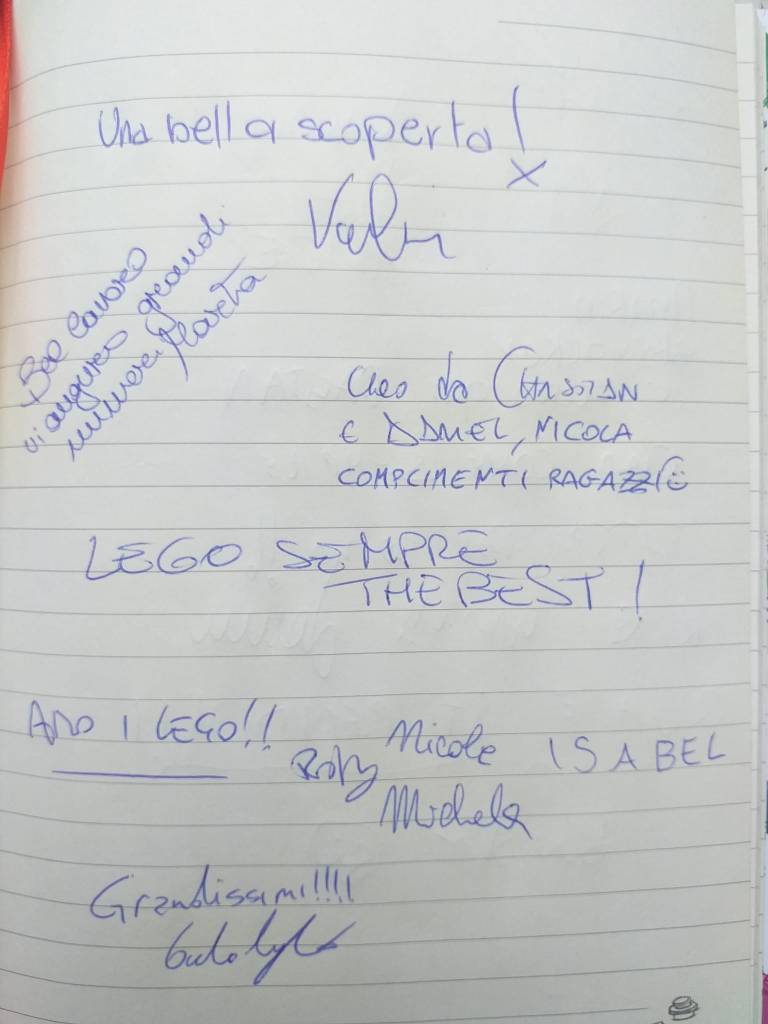 Una bella scoperta!
Bel lavoro
vi auguro grandi
numeri Marta
Ciao da Christian
E DANIEL, NICOLA
COMPLIMENTI RAGAZZI
LEGO SEMPRE
THE BEST!
AMO I LEGO!!
Roby
Nicole ISABEL
Michela
Grandissimi!!!!